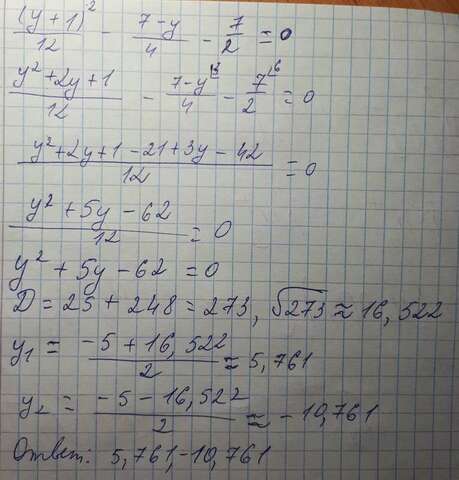 (y+1)²/12 - 7-y/4 - 7/2 = 0
y²+2y+1/12 - 7-y/4 ⌊3 - 7/2 ⌊6 = 0
y²+2y+1-21+3y-42/12 = 0
y²+5y-62/12 = 0
y²+5y-62 = 0
D = 25 + 248 = 273, √273 ≈ 16,522
y₁ = -5+16,522/2 ≈ 5,761
y₂ = -5-16,522/2 ≈ -10,761
Ответ: 5,761,-10,761